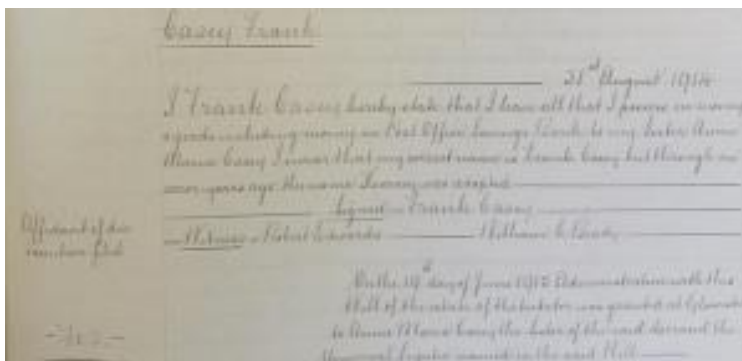 Casey Frank
21st August 1914
I Frank Casey hereby state that I leave all that I possess in money
& goods including money in Post Office Savings Bank to my Sister Annie
Casey I swear that my correct name is Frank Casey but through an
years ago the name was
Signed Frank Casey
Affidavit of due
execution filed
Witness Robert Edwards William C.
On the 19th day of June 1915 Administration with this
Will of the estate of the testator was granted at
to Annie Casey the Sister of the said deceased the
Universal Legatee named in the said Will